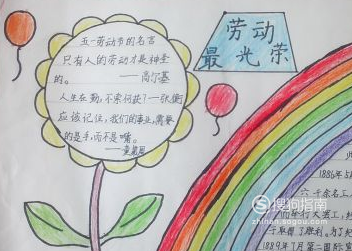 五一劳动节的名言
只有人的劳动才是神圣
的。 ——高尔基
人生在勤，不索何获？——张衡
应该记住，我们的事业，需要
的是手，而不是嘴。
——童第周
劳动
最光荣
1886年5月
六千余名工
行大罢工，
于取得了胜利。为了纪
1889年7月第二
搜狗指南
zhinan.sogou.com